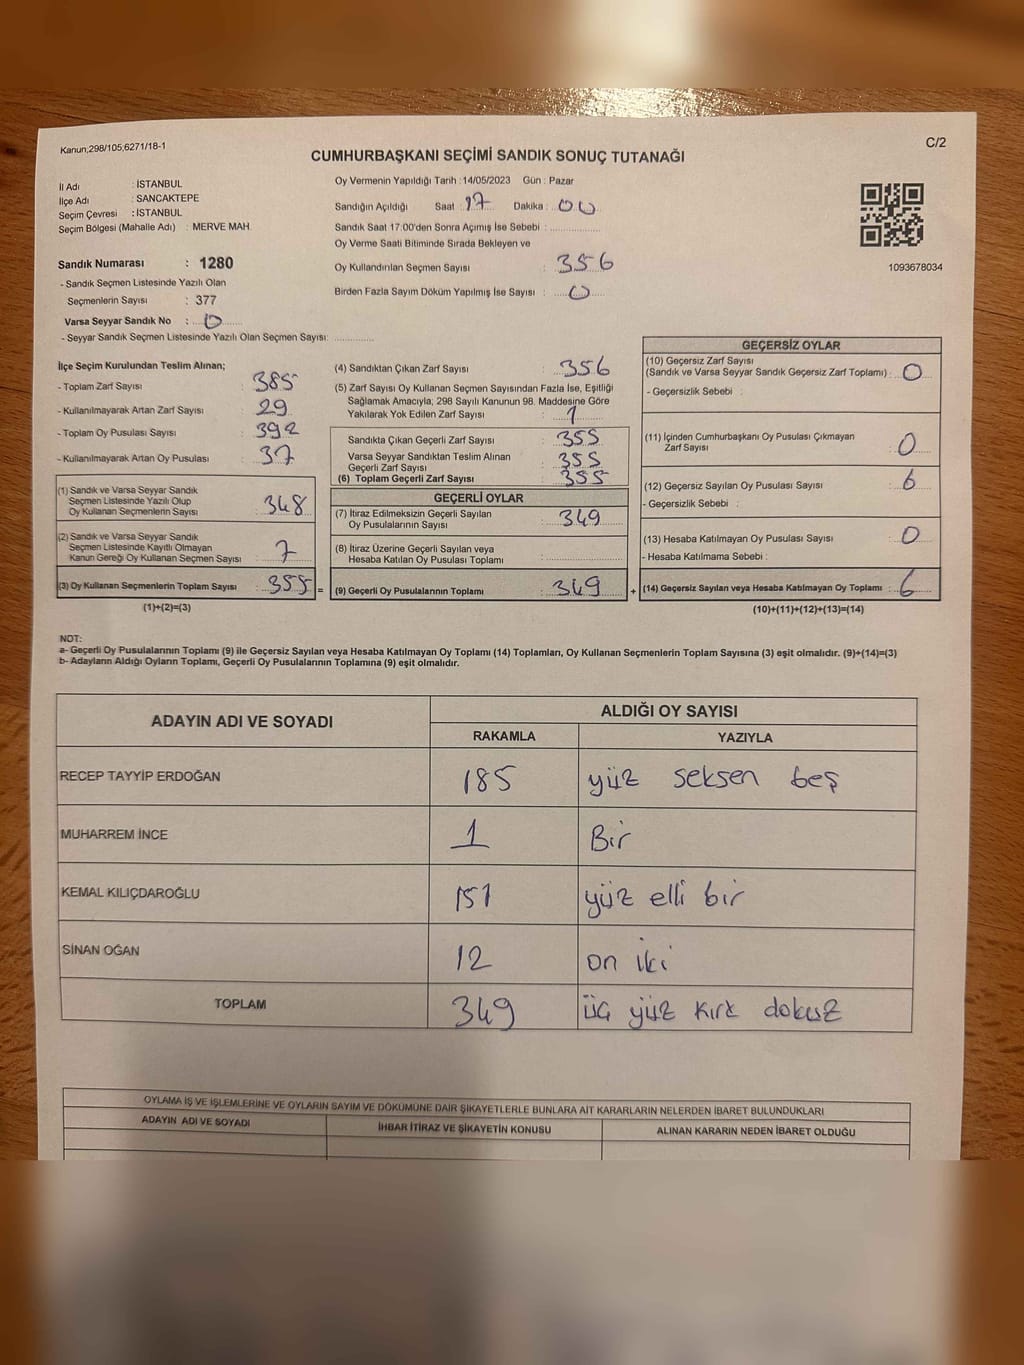 Kanun;298/105;6271/18-1
C/2
CUMHURBAŞKANI SEÇİMİ SANDIK SONUÇ TUTANAĞI
İl Adı : İSTANBUL
İlçe Adı : SANCAKTEPE
Seçim Çevresi : İSTANBUL
Seçim Bölgesi (Mahalle Adı) : MERVE MAH.
Sandık Numarası : 1280
- Sandık Seçmen Listesinde Yazılı Olan
Seçmenlerin Sayısı : 377
Varsa Seyyar Sandık No : 0
- Seyyar Sandık Seçmen Listesinde Yazılı Olan Seçmen Sayısı:
Oy Vermenin Yapıldığı Tarih : 14/05/2023 Gün : Pazar
Sandığın Açıldığı Saat : 17 Dakika : 00
Sandık Saat 17:00'den Sonra Açımış İse Sebebi :
Oy Verme Saati Bitiminde Sırada Bekleyen ve
Oy Kullandırılan Seçmen Sayısı : 356
Birden Fazla Sayım Döküm Yapılmış İse Sayısı : 0
1093678034
İlçe Seçim Kurulundan Teslim Alınan;
- Toplam Zarf Sayısı : 385
- Kullanılmayarak Artan Zarf Sayısı : 29
- Toplam Oy Pusulası Sayısı : 392
- Kullanılmayarak Artan Oy Pusulası : 37
(1) Sandık ve Varsa Seyyar Sandık
Seçmen Listesinde Yazılı Olup
Oy Kullanan Seçmenlerin Sayısı : 348
(2) Sandık ve Varsa Seyyar Sandık
Seçmen Listesinde Kayıtlı Olmayan
Kanun Gereği Oy Kullanan Seçmen Sayısı : 7
(3) Oy Kullanan Seçmenlerin Toplam Sayısı : 355 =
(1)+(2)=(3)
(4) Sandıktan Çıkan Zarf Sayısı : 356
(5) Zarf Sayısı Oy Kullanan Seçmen Sayısından Fazla İse, Eşitliği
Sağlamak Amacıyla; 298 Sayılı Kanunun 98. Maddesine Göre
Yakılarak Yok Edilen Zarf Sayısı : 1
Sandıkta Çıkan Geçerli Zarf Sayısı : 355
Varsa Seyyar Sandıktan Teslim Alınan
Geçerli Zarf Sayısı : 355
(6) Toplam Geçerli Zarf Sayısı : 355
GEÇERLİ OYLAR
(7) İtiraz Edilmeksizin Geçerli Sayılan
Oy Pusulalarının Sayısı : 349
(8) İtiraz Üzerine Geçerli Sayılan veya
Hesaba Katılan Oy Pusulası Toplamı :
(9) Geçerli Oy Pusulalarının Toplamı : 349 +
GEÇERSİZ OYLAR
(10) Geçersiz Zarf Sayısı
(Sandık ve Varsa Seyyar Sandık Geçersiz Zarf Toplamı) : 0
- Geçersizlik Sebebi :
(11) İçinden Cumhurbaşkanı Oy Pusulası Çıkmayan
Zarf Sayısı : 0
(12) Geçersiz Sayılan Oy Pusulası Sayısı : 6
- Geçersizlik Sebebi :
(13) Hesaba Katılmayan Oy Pusulası Sayısı : 0
- Hesaba Katılmama Sebebi :
(14) Geçersiz Sayılan veya Hesaba Katılmayan Oy Toplamı : 6
(10)+(11)+(12)+(13)=(14)
NOT:
a- Geçerli Oy Pusulalarının Toplamı (9) ile Geçersiz Sayılan veya Hesaba Katılmayan Oy Toplamı (14) Toplamları, Oy Kullanan Seçmenlerin Toplam Sayısına (3) eşit olmalıdır. (9)+(14)=(3)
b- Adayların Aldığı Oyların Toplamı, Geçerli Oy Pusulalarının Toplamına (9) eşit olmalıdır.
ADAYIN ADI VE SOYADI ALDIĞI OY SAYISI
RAKAMLA YAZIYLA
RECEP TAYYİP ERDOĞAN 185 yüz seksen beş
MUHARREM İNCE 1 Bir
KEMAL KILIÇDAROĞLU 151 yüz elli bir
SİNAN OĞAN 12 on iki
TOPLAM 349 üç yüz kırk dokuz
OYLAMA İŞ VE İŞLEMLERİNE VE OYLARIN SAYIM VE DÖKÜMÜNE DAİR ŞİKAYETLERLE BUNLARA AİT KARARLARIN NELERDEN İBARET BULUNDUKLARI
ADAYIN ADI VE SOYADI İHBAR İTİRAZ VE ŞİKAYETİN KONUSU ALINAN KARARIN NEDEN İBARET OLDUĞU